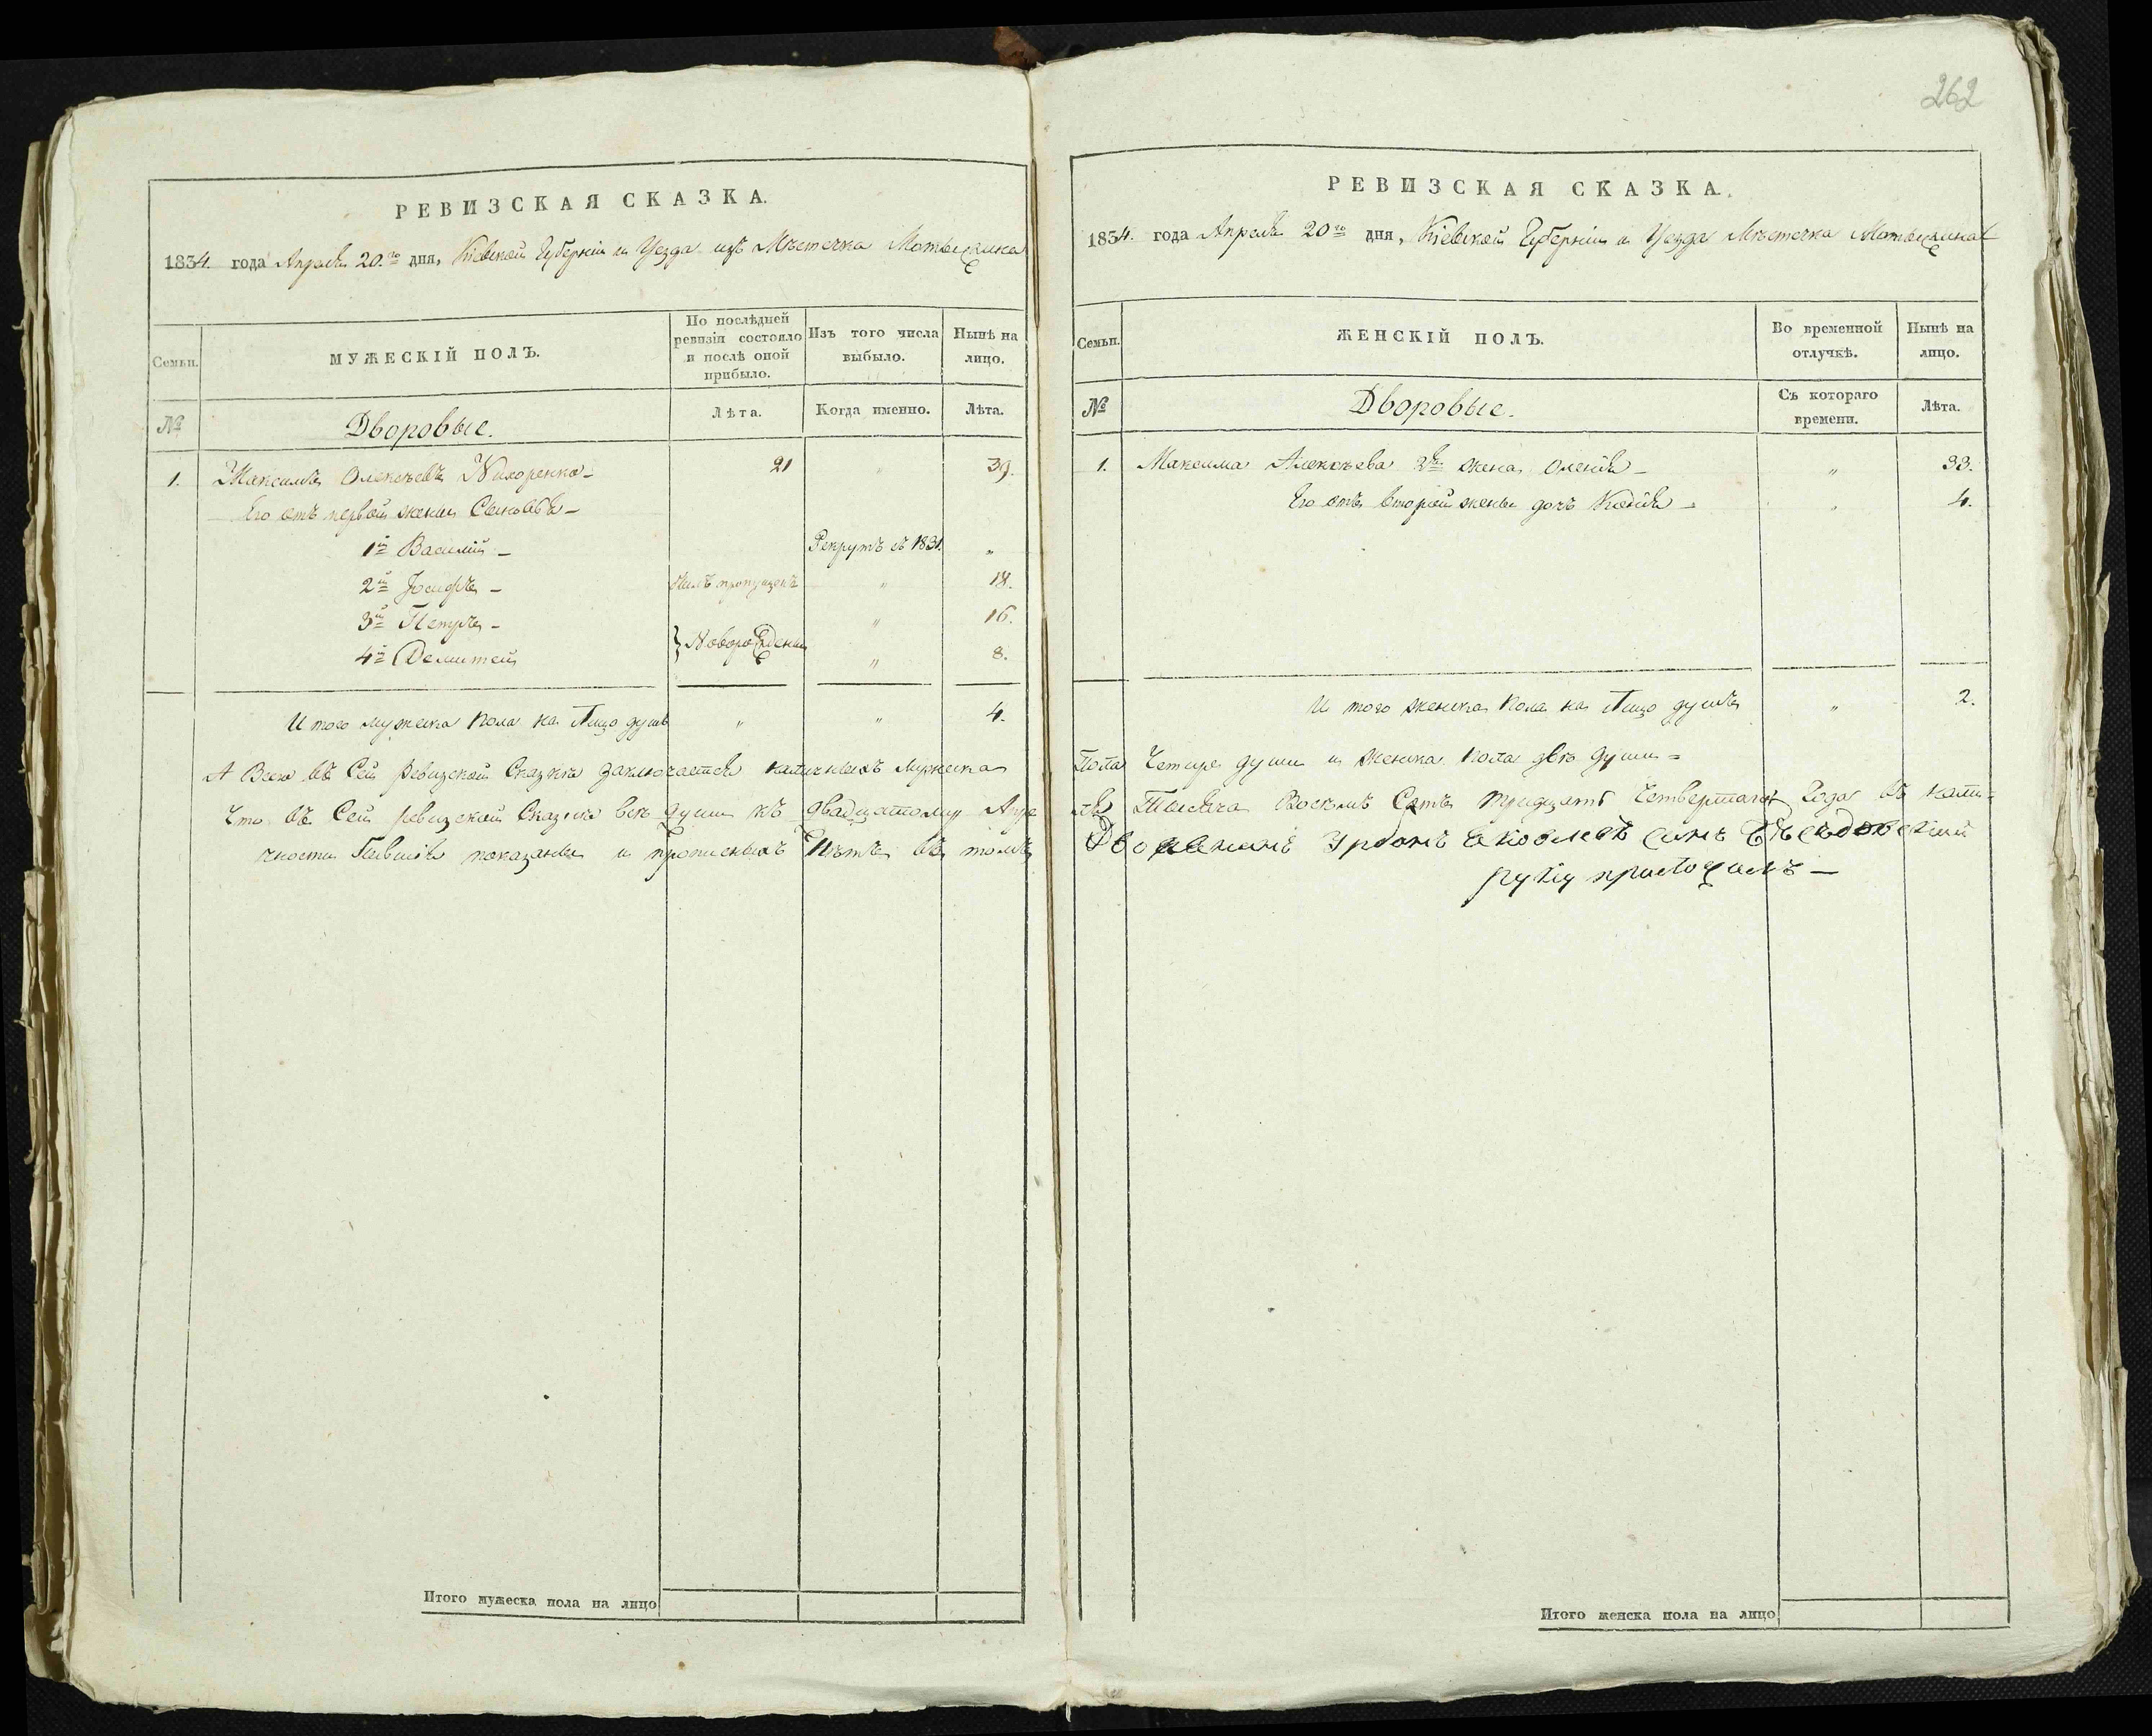 262
РЕВИЗСКАЯ СКАЗКА.
1834. года Апреля 20.го дня, Кіевской Губерніи и Уезда изъ Мѣстечка Мотыжина
Семьи.
МУЖЕСКІЙ ПОЛЪ.
По послѣдней ревизіи состояло и послѣ оной прибыло.
Изъ того числа выбыло.
Нынѣ на лицо.
№
Дворовые.
Лѣта.
Когда именно.
Лѣта.
1. Максимъ Олексѣевъ 21 " 39.
Его отъ первой жены Сыновья
1й Василій Рекрутъ съ 1831. "
2й Іосифъ пропущенъ " 18.
3й Петръ " 16.
} Новорождены
4й " 8.
И того мужеска пола на Лицо душъ " " 4.
А Всего въ Сей ревизской Сказкѣ заключается наличныхъ Мужеска
Что въ Сей ревизской Сказке все души къ двадцатому Апре
чности показаны и прописныхъ Нѣтъ въ томъ
Итого мужеска пола на лицо
РЕВИЗСКАЯ СКАЗКА.
1834. года Апреля 20го дня, Кіевской Губерніи и Уезда Мѣстечка Мотыжина
Семьи.
ЖЕНСКІЙ ПОЛЪ.
Во временной отлучкѣ.
Нынѣ на лицо.
№
Дворовые.
Съ котораго времени.
Лѣта.
1. Максима Алексѣева 2я жена " 33.
Его отъ второй жены дочь " 4.
И того женска Пола на Лицо душъ " 2.
Пола Четыре души и женска пола двѣ души =
ля Тысяча Восемь Сотъ тридцать Четвертаго Года въ нали=
Дворянинъ Урбанъ Яковлевъ сынъ
руку приложилъ —
Итого женска пола на лицо